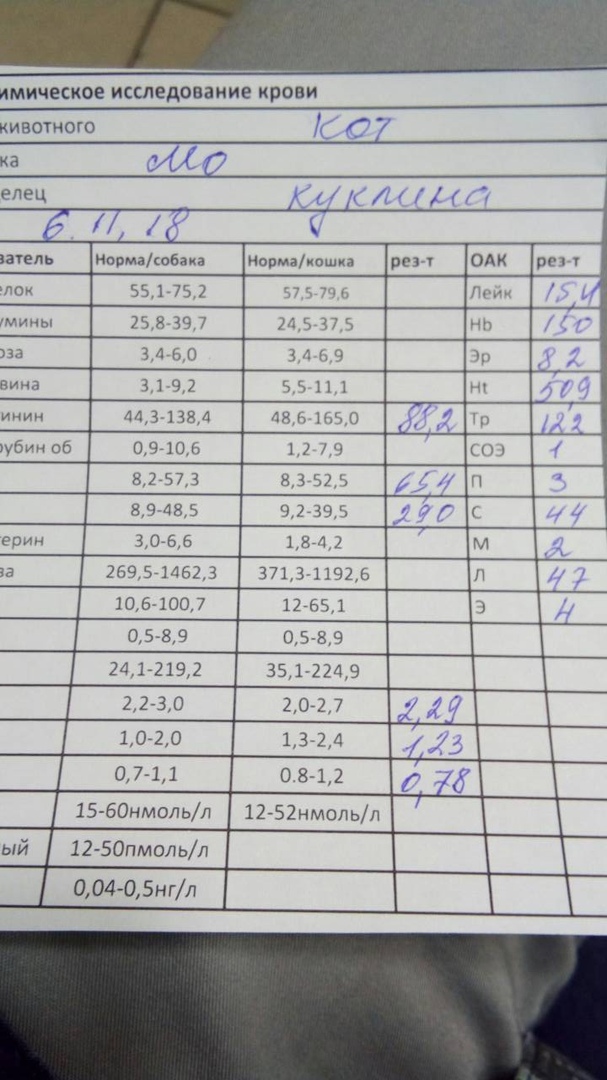 имическое исследование крови
животного кот
ка Мо
елец Куклина
6.11.18
затель Норма/собака Норма/кошка рез-т ОАК рез-т
елок 55,1-75,2 57,5-79,6 Лейк 15,4
умины 25,8-39,7 24,5-37,5 Hb 150
оза 3,4-6,0 3,4-6,9 Эр 8,2
вина 3,1-9,2 5,5-11,1 Ht 50,9
инин 44,3-138,4 48,6-165,0 88,2 Тр 122
рубин об 0,9-10,6 1,2-7,9 СОЭ 1
8,2-57,3 8,3-52,5 65,4 П 3
8,9-48,5 9,2-39,5 29,0 С 44
герин 3,0-6,6 1,8-4,2 М 2
за 269,5-1462,3 371,3-1192,6 Л 47
10,6-100,7 12-65,1 Э 4
0,5-8,9 0,5-8,9
24,1-219,2 35,1-224,9
2,2-3,0 2,0-2,7 2,29
1,0-2,0 1,3-2,4 1,23
0,7-1,1 0.8-1,2 0,78
15-60нмоль/л 12-52нмоль/л
ый 12-50пмоль/л
0,04-0,5нг/л